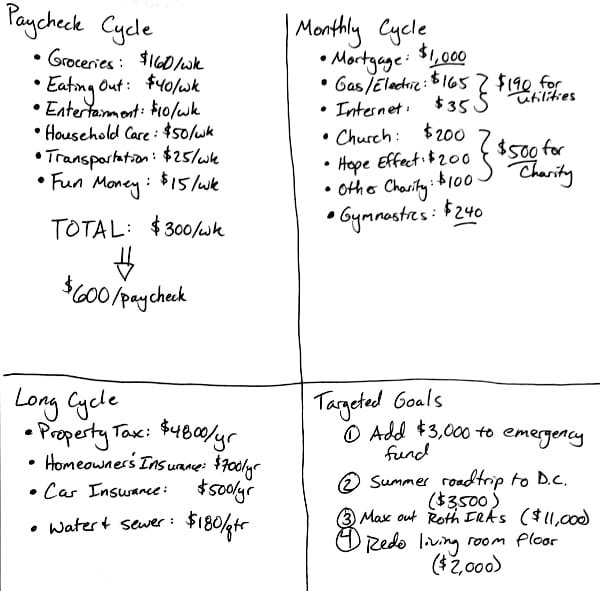 Paycheck Cycle
• Groceries: $160/wk
• Eating Out: $40/wk
• Entertainment: $10/wk
• Household Care: $50/wk
• Transportation: $25/wk
• Fun Money: $15/wk
TOTAL: $300/wk
$600/paycheck
Monthly Cycle
• Mortgage: $1,000
• Gas/Electric: $165
• Internet: $35
$190 for
utilities
• Church: $200
• Hope Effect: $200
• Other Charity: $100
$500 for
Charity
• Gymnastics: $240
Long Cycle
• Property Tax: $4800/yr
• Homeowner's Insurance: $700/yr
• Car Insurance: $500/yr
• Water + sewer: $180/qtr
Targeted Goals
① Add $3,000 to emergency
fund
② Summer roadtrip to D.C.
($3,500)
③ Max out Roth IRAs ($11,000)
④ Redo living room floor
($2,000)